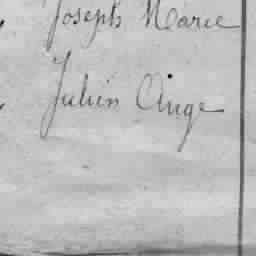 Joseph Marie
Julien Ange